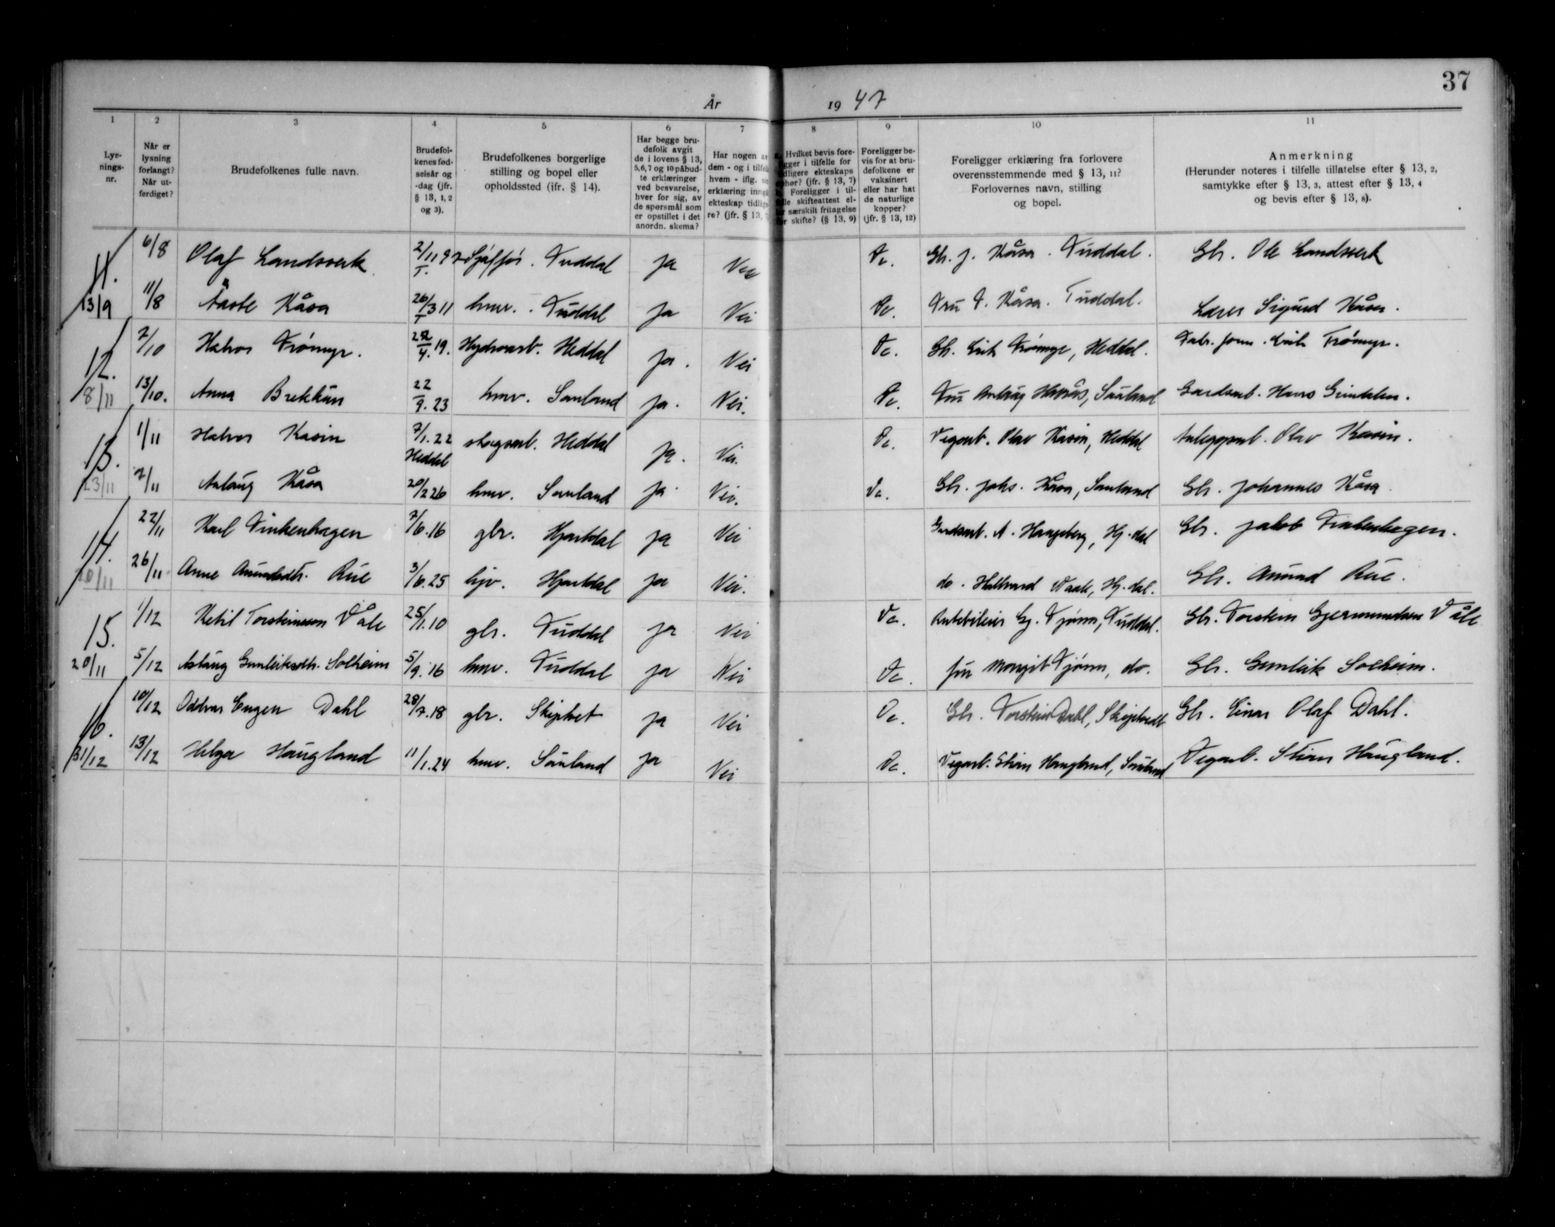 37
År 1947
1 2 3 4 5 6 7 8 9 10 11
Lysnings-nr.
Når er lysning forlangt? Når utferdiget?
Brudefolkenes fulle navn.
Brudefolkenes fødselsår og -dag (jfr. § 13, 1, 2 og 3).
Brudefolkenes borgerlige stilling og bopel eller opholdssted (ifr. § 14).
Har begge brudefolk avgit de i lovens § 13, 5,6,7 og 10 påbudte erklæringer ved besvarelse, hver for sig, av de spørsmål som er opstillet i det anordn. skema?
Har nogen av dem - og i tilfelle hvem - iflg.
erklæring
ekteskap tidlige-
re? (jfr. § 13, 7
Hvilket bevis fore-
ligger i tilfelle for
tidligere ekteskaps
ophør? (jfr. § 13, 7)
Foreligger i til-
felle skifteattest el-
ler særskilt friagelse
for skifte? (§ 13, 9)
Foreligger bevis for at brudefolkene er vaksinert eller har hat de naturlige kopper? (jfr. § 13, 12)
Foreligger erklæring fra forlovere overensstemmende med § 13, 11? Forlovernes navn, stilling og bopel.
Anmerkning (Herunder noteres i tilfelle tillatelse efter § 13, 2, samtykke efter § 13, 3, attest efter § 13, 4 og bevis efter § 13, 8).
11. 6/8 Olaf Landsverk 2/11 Sjåfør. Tuddal ja Nei Va. Gbr. J. Kåsa. Tuddal. Gbr. Ole Landsverk
13/9 11/8 Åaste Kåsa 26/3 11 hmv. Tuddal ja Nei Va. Fru T. Kåsa. Tuddal. Lærer Sigurd Kåsa.
12. 7/10 Halvor Trømyr. 4. 19. Hydroarb. Heddal ja. Nei Va. Gb. Eirik Trømyr, Heddal. Fabr. form. Eirik Trømyr.
8/11 13/10. Anna Brekkån 22/9. 23 hmv. Sauland ja. Nei. Va. Fru Sauland Gardarb. Hans
13. 1/11 Halvor Kasin 7/1. 22 Heddal skogsarb. Heddal ja. Nei. Va. Vegarb. Olav Kasin, Heddal Anleggsarb. Olav Kasin.
23/11 7/11 Aslaug Kåsa 20/2 26 hmv. Sauland ja Nei. Va. Gbr. Johs. Kåsa, Sauland Gbr. Johannes Kåsa
14. 22/11 Karl Finkenhagen 7/6. 16 gbr. Hjartdal ja Nei Gardarb. A. Haugsberg, Hj.dal Gbr. Jakob Finkenhagen.
10/11 26/11 Anne Amundsdtr. Rue 3/6. 25 hjv. Hjartdal ja Nei. do. Hallvard Hj.dal. Gbr. Amund Rue.
15. 1/12 Ketil Torsteinsson Våle 25/1. 10 gbr. Tuddal ja Nei Va. Gj. Tjønn, Tuddal. Gbr. Torstein Gjermundsen Våle
20/11 5/12 Aslaug Gunleiksdtr. Solheim 5/9. 16 hmv. Tuddal ja Nei Va. fru Margit Tjønn, do. Gbr. Gunleik Solheim.
16. 10/12 Oddvar Eugen Dahl 28/7. 18 gbr. Skiptvet ja Nei Va. Gbr. Torstein Dahl, Skiptvedt Gbr. Einar Olaf Dahl.
31/12 13/12 Helga Haugland 11/1. 24 hmv. Sauland ja Nei Va. Vegarb. Stian Haugland, Sauland Vegarb. Stian Haugland.